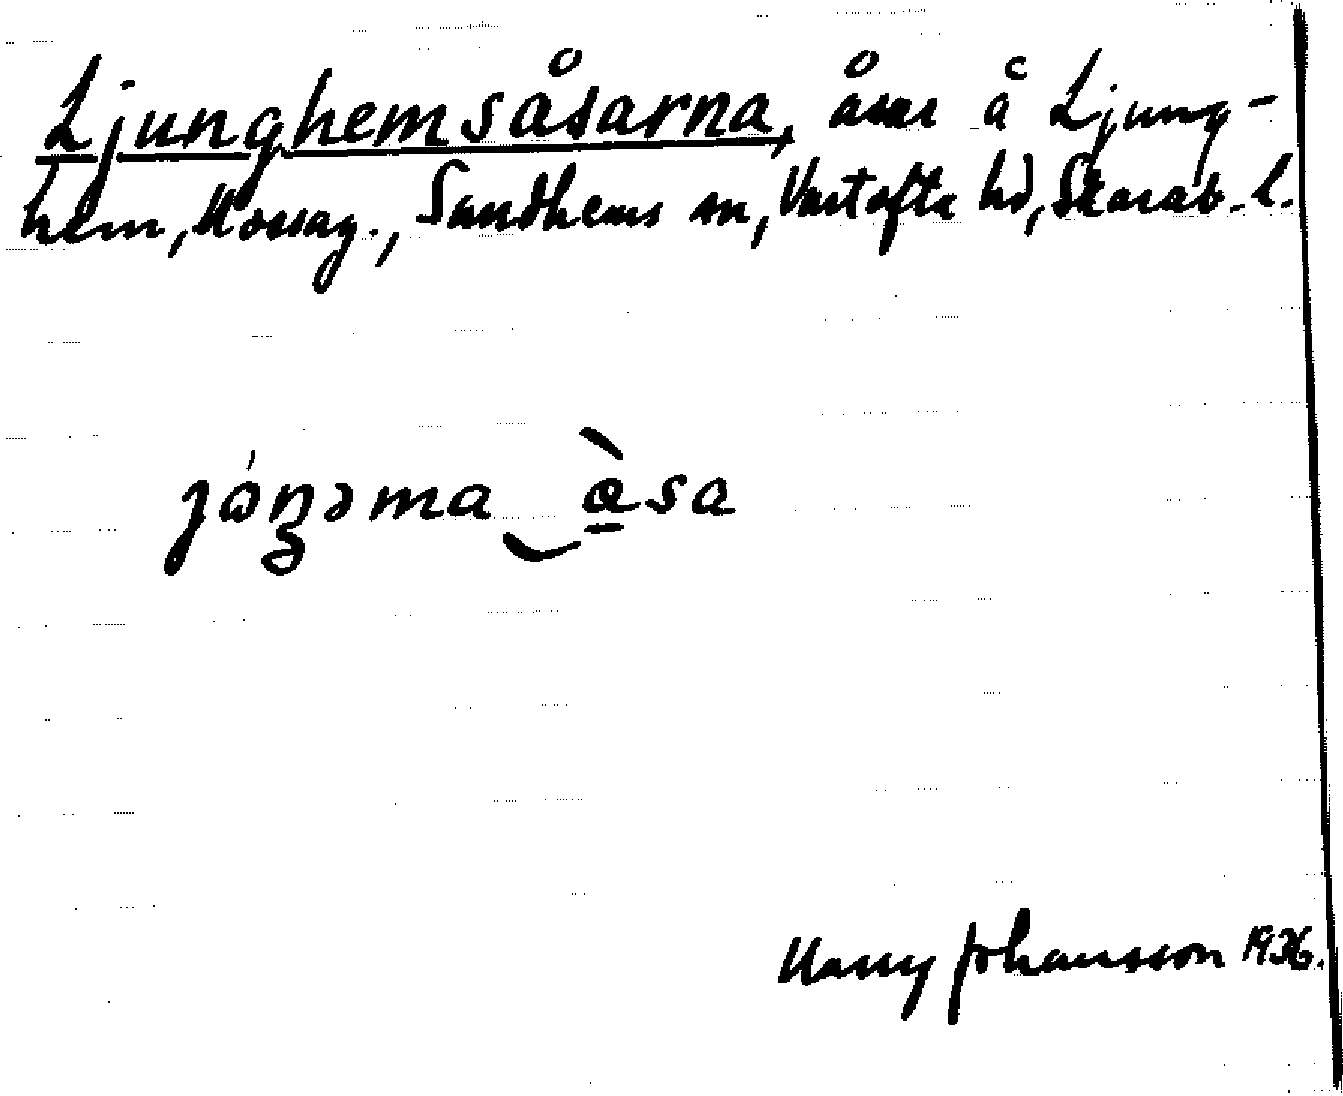 Ljunghemsåsarna, åsar å Ljung-
hem, Mossag., Sandhems sn, Vartofta hd, Skarab. l.
jóŋəma‿àsa
Harry Johansson 1936.